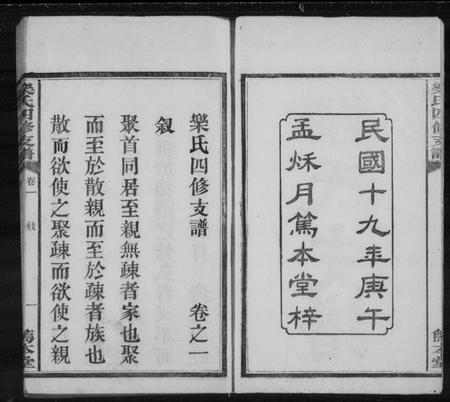 民國十九年庚午
孟秌月篤本堂梓
樂氏四修支譜
篤本堂
樂氏四修支譜 卷之一
敘
聚首同居至親無疎者家也聚
而至於散親而至於疎者族也
散而欲使之聚疎而欲使之親
樂氏四修支譜
卷一
一
篤本堂